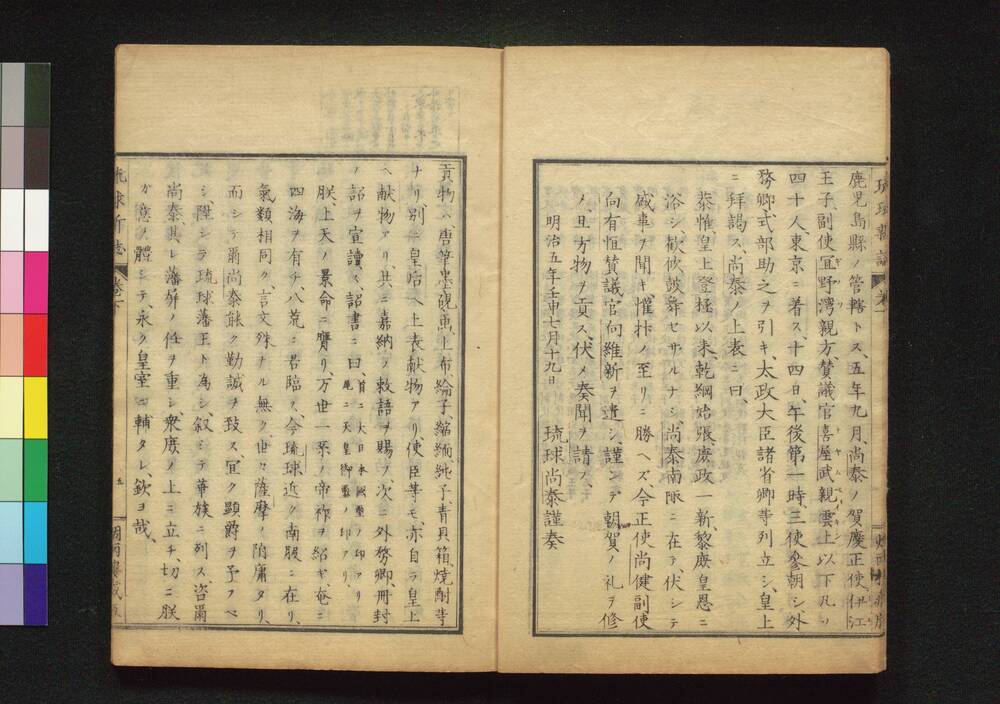 鹿児島縣ノ管轄トス、五年九月、尚泰ノ賀慶正使伊江
王子副使宜野湾親方、賛議官喜屋武親雲上以下凡ソ
四十人、東京ニ着ス、十四日、午後第一時、三使參朝シ外
務卿式部助之ヲ引キ、太政大臣諸省卿等列立シ、皇上
ニ拜謁ス、尚泰ノ上表ニ曰、
恭惟、皇上登極以来、乾綱始張、庶政一新、黎庶皇恩ニ
浴シ、歓欣鼓舞セサルナシ、尚泰南陬ニ在テ、伏シテ
盛事ヲ聞キ、懽抃ノ至リニ勝ヘズ、今正使尚健副使
向有恒賛議官向維新ヲ遣シ、謹ンデ朝賀ノ礼ヲ修
メ、且方物ヲ貢ス、伏メ奏聞ヲ請フ、
明治五年壬申七月十九日
琉球尚泰謹奏
貢物ハ、唐筆、墨、硯、画、上布、綸子、縮緬、純子、青貝箱、焼酎等
ナリ、別ニ皇后ヘ上表献物アリ、使臣等モ、亦自ラ皇上
ヘ献物アリ、共ニ嘉納ノ敕語ヲ賜フ、次ニ外務卿、冊封
ノ詔ヲ宣讀ス、詔書ニ曰、首ニ大日本國璽ノ印アリ
尾ニ天皇御璽ノ印アリ、
朕、上天ノ景命ニ膺リ、万世一系ノ帝祚ヲ紹ギ、奄ニ
四海ヲ有チ、八荒ニ君臨ス、今琉球近ク南服ニ在リ、
氣類相同ク、言文殊ナル無ク、世々薩摩ノ附庸タリ、
而シテ爾尚泰能ク勤誠ヲ致ス、宜ク顯爵ヲ予フベ
シ、陞シテ琉球藩王ト為シ、叙シテ華族ニ列ス、咨爾
尚泰、其レ藩屏ノ任ヲ重シ、衆庶ノ上ニ立チ、切ニ朕
ガ意ノ體シテ、永ク皇室ニ輔タレ、欽ヨ哉、
琉球新志
巻下
五